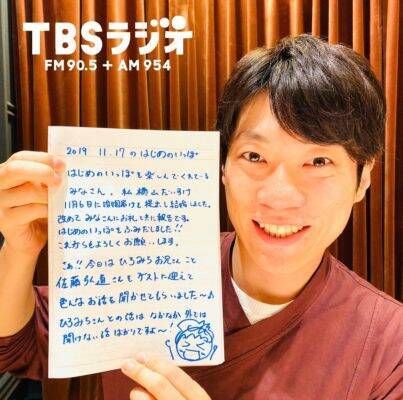 TBSラジオ
FM90.5 + AM954
2019 11.17 のはじめのいっぽ
はじめのいっぽを楽しんでくれている
みなさん。私横山だいすけ
11月6日に婚姻届けを提出し結婚しました。
改めてみなさんにお礼と共に報告です。
はじめのいっぽをふみだしました!!
これからもよろしくお願いします。
さぁ!! 今日はひろみちお兄さんこと
佐藤弘道さんをゲストに迎えて
色んなお話を聞かせてもらいました〜♪
ひろみちさんとの話はなかなか外では
聞けない話ばかりですよ〜!